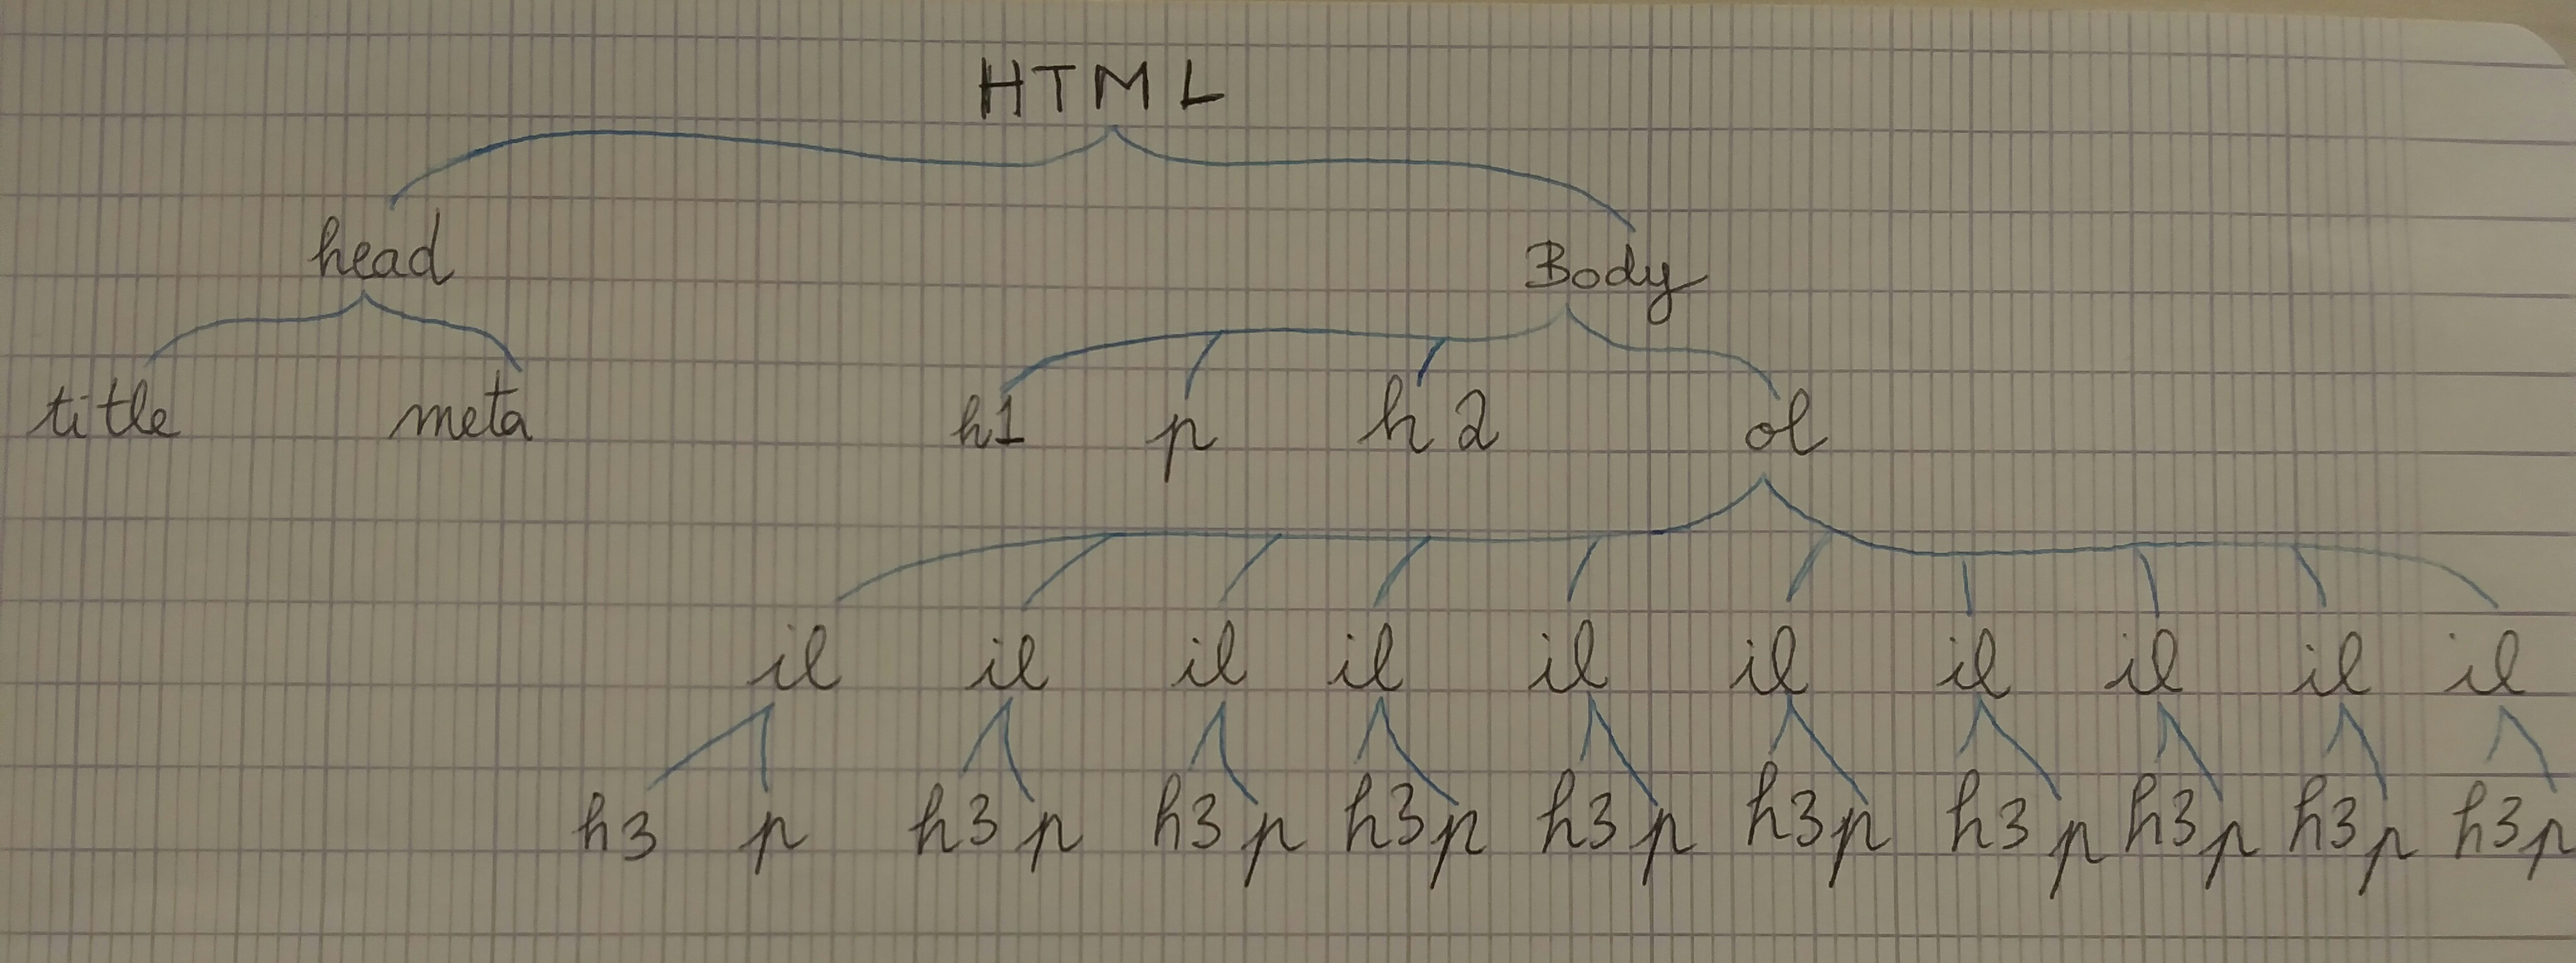 HTML
head Body
title meta h1 p h2 ol
il il il il il il il il il il
h3 p h3 p h3 p h3 p h3 p h3 p h3 p h3 p h3 p h3 p